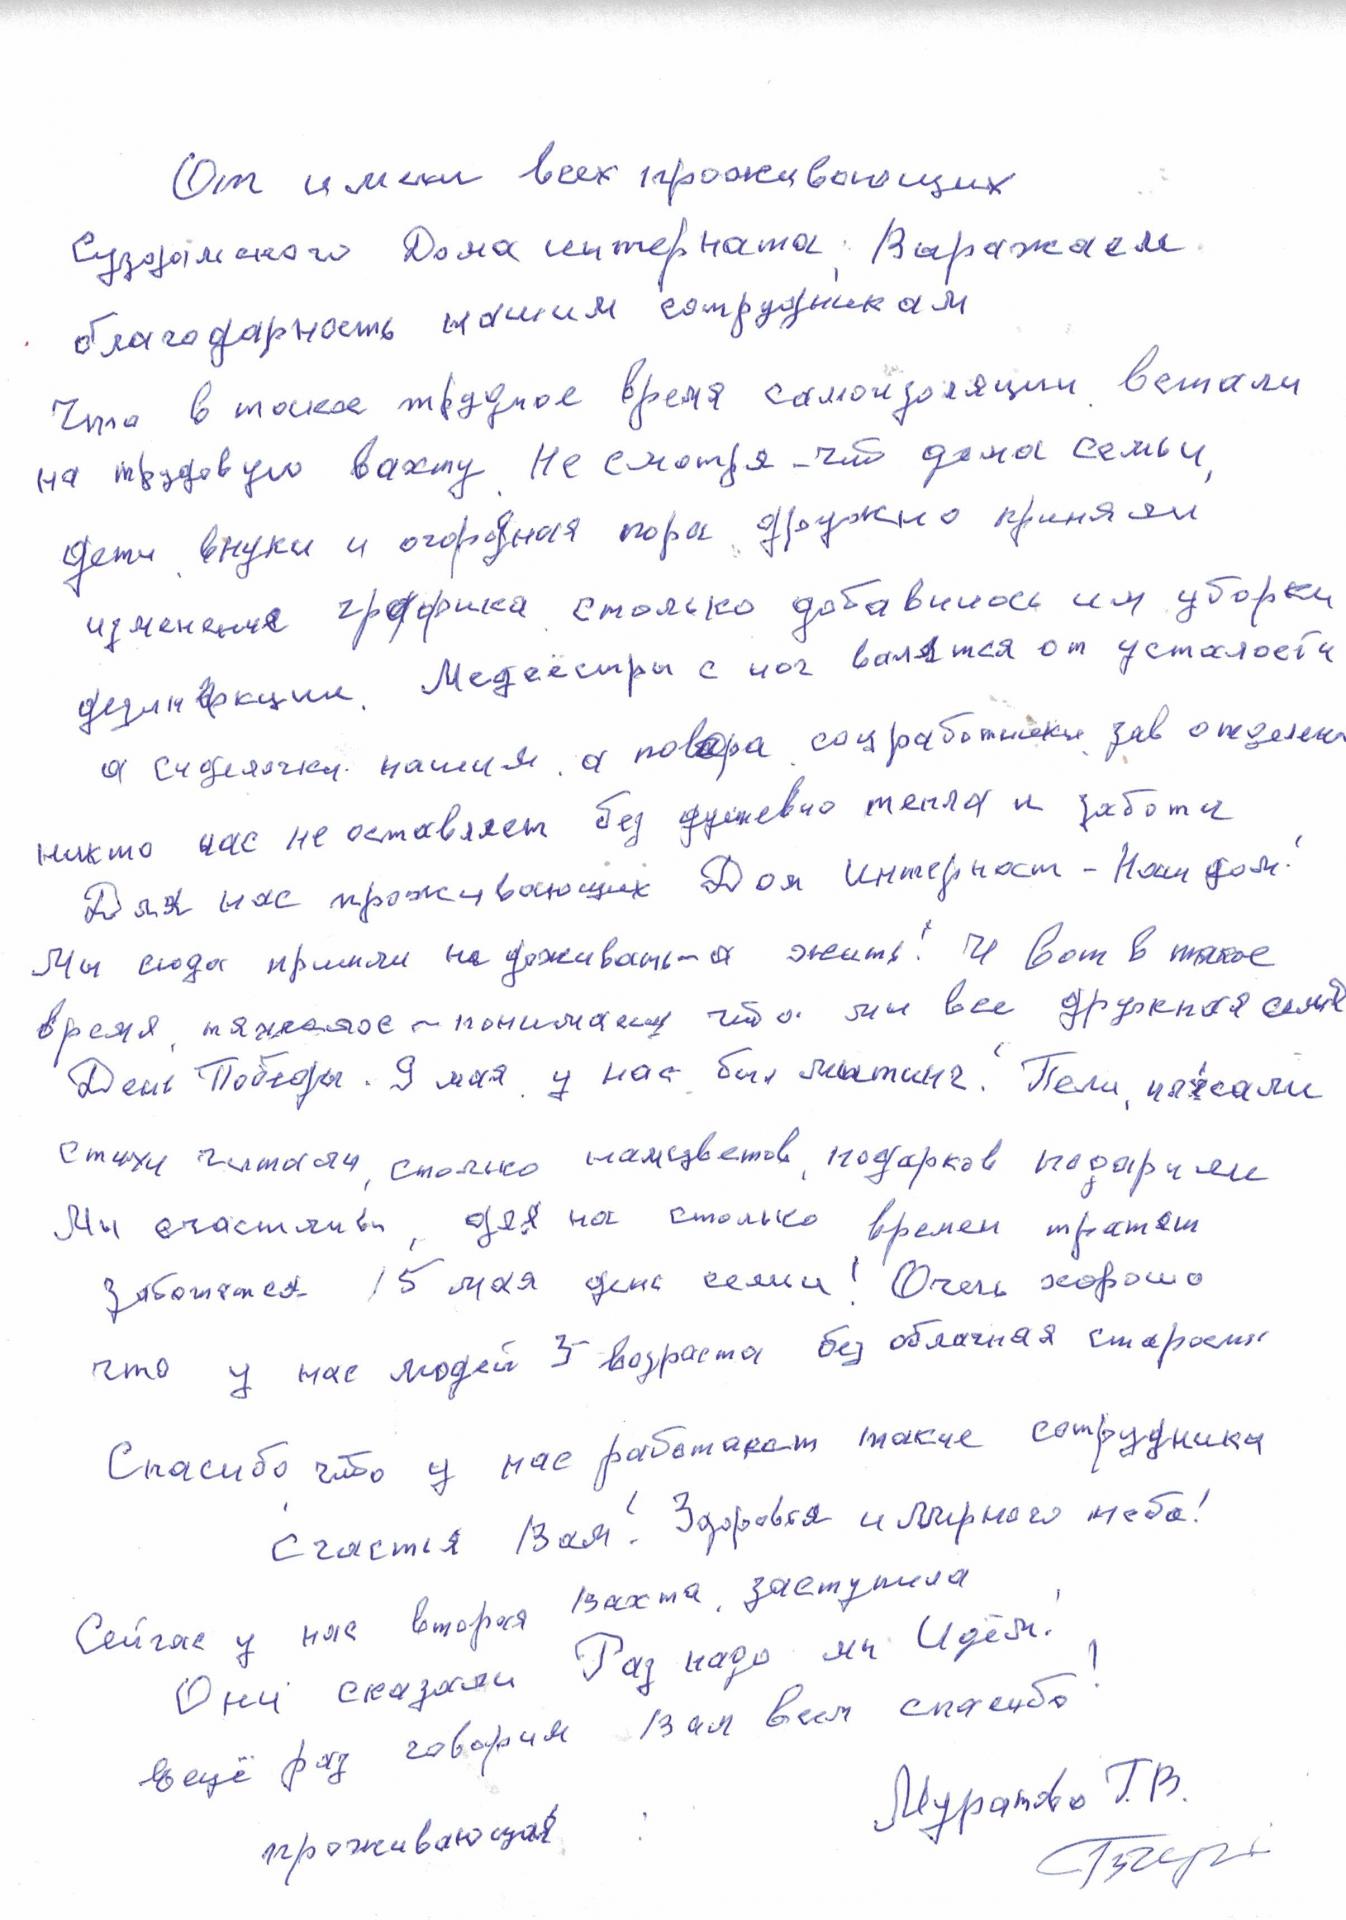 От имени всех проживающих
Суздальского Дома интерната, Выражаем
благодарность нашим сотрудникам
Что в такое трудное время самоизоляции встали
на трудовую вахту. Не смотря – что дома семьи,
дети, внуки и огородная пора, дружно приняли
изменение графика столько добавилось им уборки
дезинфекции. Медсёстры с ног валятся от усталости
а сиделочки наши, а повара, соцработники, зав отделен
никто нас не оставляет без душевно тепла и заботы
Для нас проживающих Дом Интернат – Наш дом!
Мы сюда пришли не доживать – а жить! И вот в такое
время, тяжелое – понимаем что мы все дружная семья
День Победы. 9 мая у нас был митинг! Пели, плясали
стихи читали, столько нам цветов, подарков подарили
Мы счастливы, для нас столько времен тратят
Заботятся 15 мая день семьи! Очень хорошо
что у нас людей 3 возраста без облачная старость
Спасибо, что у нас работают такие сотрудники
Счастья Вам! Здоровья и Мирного неба!
Сейчас у нас вторая Вахта, заступила
Они сказали Раз надо мы Идём!
ещё раз говорим Вам всем спасибо!
проживающая Муратова Т.В.